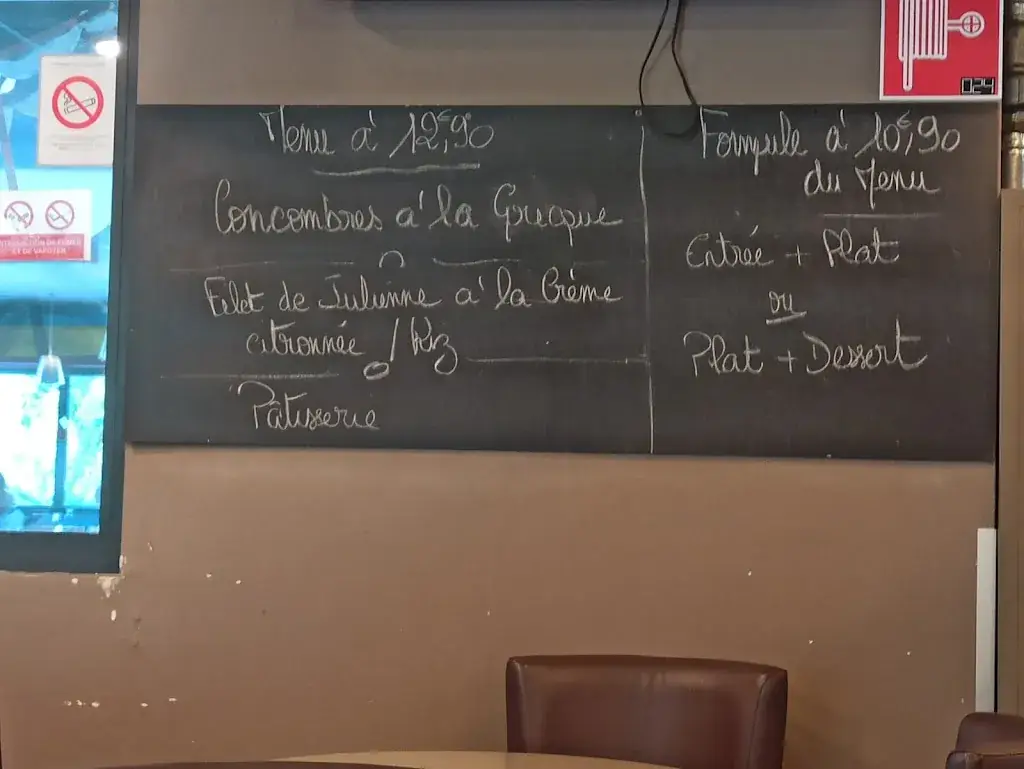 Menu à 12€,90
Concombres à la Grecque
Filet de Julienne à la Crème
citronnée / Riz
Pâtisserie
Formule à 10€,90
du Menu
Entrée + Plat
ou
Plat + Dessert
024
INTERDICTION DE FUMER
ET DE VAPOTER